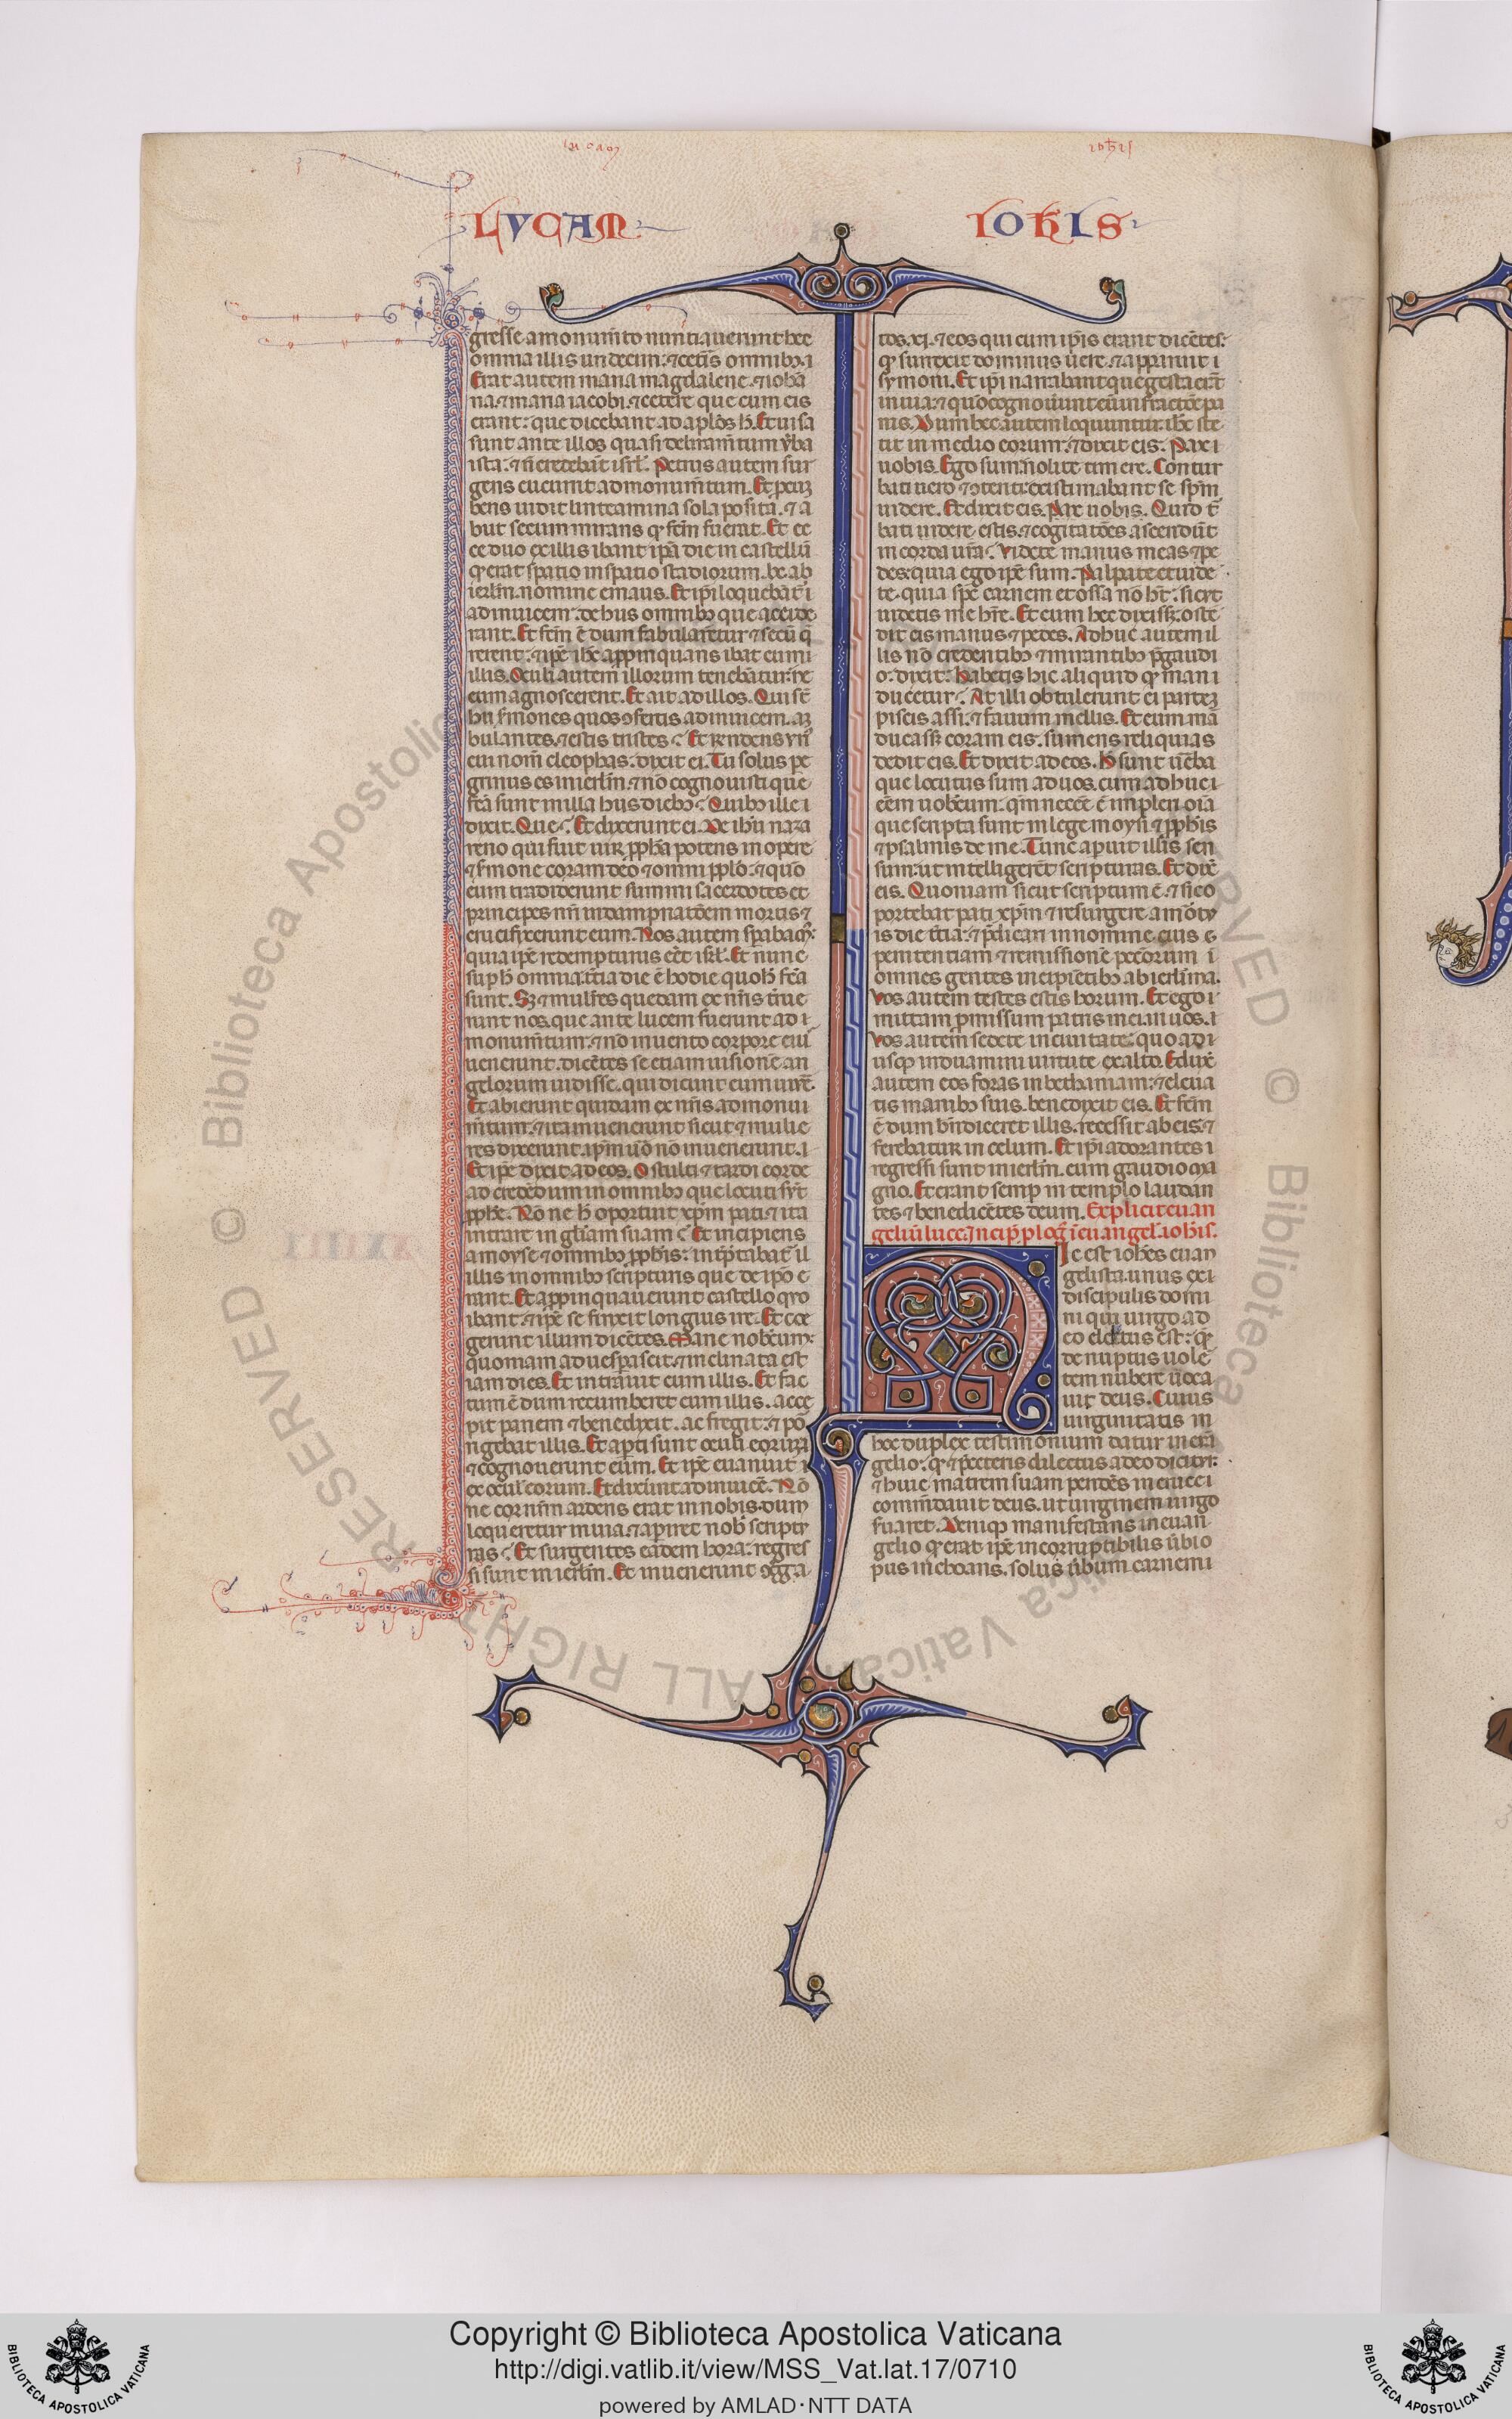 LVCAM
IOHIS
gresse a monum̅to nuntiauerunt hec
omnia illis undecim. ⁊ cet̅is omnibꝫ. i
Erat autem maria magdalene. ⁊ ioha̅
na. ⁊ maria iacobi. ⁊ cetere que cum eis
erant: que dicebant ad aplos h̅. Et uisa
sunt ante illos quasi deliram̅tum v̅ba
ista: ⁊ n̅ credeba̅t ist̅. Petrus autem sur
gens cucurrit ad monum̅tum. Et procu̅
bens uidit linteamina sola posita. ⁊ a
biit secum mirans qꝫ fc̅m fuerat. Et ec
ce duo ex illis ibant ip̅a die in castellu̅
qꝫ erat spatio in spatio stadiorum .lx. ab
ierl̅m. nomine emaus. Et ip̅i loqueba̅t̅ i
ad inuicem: de hiis omnibꝫ que accide
rant. Et fc̅m e̅ dum fabulare̅tur ⁊ secu̅ q̅
rerent: ⁊ ip̅e ih̅c appinquans ibat cum i
illis. Oculi autem illorum teneba̅tur: ne
eum agnoscerent. Et ait ad illos. Qui su̅t
hii s̅mones quos ꝯfertis ad inuicem. am
bulantes. ⁊ estis tristes? Et r̅n̅dens vn̅
cui nom̅ cleophas. dixit ei. Tu solus pe
grinus es in ierl̅m. ⁊ no̅ cognouisti que
fc̅a sunt in illa hiis diebꝫ? Quibꝫ ille i
dixit. Que? Et dixerunt ei. De ih̅u naza
reno qui fuit uir p̅pha potens in opere
⁊ s̅mone coram deo ⁊ omni pplo: ⁊ quo̅
eum tradiderunt summi sacerdotes et
principes nr̅i in dampnato̅em mortis ⁊
crucifixerunt eum. Nos autem sp̅abamꝰ:
quia ip̅e redempturus eet̅ isrl̅. Et nunc
sup h̅ omnia. t̅cia die e̅ hodie quo h̅ fc̅a
sunt. Sꝫ ⁊ mulie̅s quedam ex nr̅is t̅rue
runt nos. que ante lucem fuerunt ad i
monum̅tum: ⁊ no̅ inuento corpore eiꝰ
uenerunt. dice̅tes se etiam uisione̅ an
gelorum uidisse. qui dicunt eum uiue̅.
Et abierunt quidam ex nr̅is ad monu
m̅tum: ⁊ ita inuenerunt sicut ⁊ mulie
res dixerunt. ip̅m u̅o no̅ inuenerunt. i
Et ip̅e dixit ad eos. O stulti ⁊ tardi corde
ad crede̅dum in omnibꝫ que locuti su̅t
pphe. No̅ne h̅ oportuit xp̅m pati ⁊ ita
intrare in gl̅iam suam? Et incipiens
a moyse ⁊ omnibꝫ pphis: int̅ptabat̅ il
illis in omnibꝫ scripturis que de ip̅o e
rant. Et appinquauerunt castello quo
ibant: ⁊ ip̅e se finxit longius ire. Et coe
gerunt illum dice̅tes. Mane nobiscum:
quoniam aduesp̅ascit: ⁊ inclinata est
iam dies. Et intrauit cum illis. Et fac
tum e̅ dum recumberet cum illis. acce
pit panem ⁊ benedixit. ac fregit: ⁊ po̅
rigebat illis. Et ap̅ti sunt oculi eorum
⁊ cognouerunt eum. Et ip̅e euanuit i
ex oculi̅s eorum. Et dixe̅unt ad inuice̅. No̅
ne cor nr̅m ardens erat in nobis. dum
loqueretur in uia. ⁊ apiret nob̅ scriptu
ras? Et surgentes eadem hora: regres
si sunt in ierl̅m. Et inuenerunt ꝯg̅ga
tos .xj. ⁊ eos qui cum ip̅is erant dice̅tes:
qꝫ surrexit dominus uere. ⁊ apparuit i
symoni. Et ip̅i narrabant que gesta era̅t
in uia: ⁊ quo̅ cognou̅unt eu̅ in fractio̅e pa
nis. Dum hec autem loquuntur. ih̅c ste
tit in medio eorum: ⁊ dixit eis. Pax i
uobis. Ego sum: nolite timere. Contur
bati uero ⁊ ꝯterriti: existimabant se sp̅m
uidere. Et dixit eis. Pax uobis. Quid t̅
bati uidere estis. ⁊ cogitato̅es ascendu̅t
in corda ur̅a? Videte manus meas ⁊ pe
des: quia ego ip̅e sum. Palpate et uide
te. quia sp̅c carnem et ossa no̅ h̅t: sicut
uidetis me hr̅e. Et cum hec dixissꝫ. oste̅
dit eis manus ⁊ pedes. Adhuc autem il
lis no̅ credentibꝫ ⁊ mirantibꝫ p̅ gaudi
o: dixit. Habetis hic aliquid qꝫ man i
ducetur? At illi obtulerunt ei partem
piscis assi. ⁊ fauum mellis. Et cum ma̅
ducassꝫ coram eis. sumens reliquias
dedit eis. Et dixit ad eos. H̅ sunt u̅ba
que locutus sum ad uos. cum adhuc i
eem uobiscum: qm̅ necce̅ e̅ impleri oi̅a
que scripta sunt in lege moysi ⁊ pphis
⁊ psalmis de me. Tunc apuit illis sen
sum: ut intelligere̅t scripturas. Et dix̅
eis. Quoniam sicut scriptum e̅. ⁊ sic o
portebat pati xp̅m ⁊ resurgere a mo̅tu
is die t̅cia: ⁊ p̅dicari in nomine eius
penitentiam ⁊ remissione̅ peccorum i
omnes gentes incipie̅tibꝫ ab ierl̅ima.
Vos autem testes estis horum. Et ego i
mittam p̅missum patris mei in uos. i
Vos autem sedete in ciuitate: quo ad i
usqꝫ induamini uirtute ex alto. Eduxi̅
autem eos foras in bethaniam: ⁊ eleua
tis manibꝫ suis. benedixit eis. Et fc̅m
e̅ dum bn̅diceret illis. recessit ab eis: ⁊
ferebatur in celum. Et ip̅i adorantes i
regressi sunt in ierl̅m. cum gaudio ma
gno. Et erant semp in templo laudan
tes ⁊ benedice̅tes deum. Explicit euan
geliu̅ luce. Incip̅ plog̅ i̅ euangel̅. ioh̅is.
Hic est ioh̅es euan
gelista. unus ex i
discipulis domi
ni qui uirgo a d
eo electus est: qꝫ
de nuptiis uole̅
tem nubere uoca
uit deus. Cuius
uirginitatis in
hoc duplex testimonium datur in eua̅
gelio: qꝫ ⁊ p̅ceteris dilectus a deo dicitur:
⁊ huic matrem suam pende̅s in cruce i
comm̅dauit deus. ut uirginem uirgo
s̅uaret. Deniqꝫ manifestans in euan
gelio qꝫ erat ip̅e incorruptibilis u̅bi o
pus inchoans. solus u̅bum carnem i
Copyright © Biblioteca Apostolica Vaticana
http://digi.vatlib.it/view/MSS_Vat.lat.17/0710
powered by AMLAD·NTT DATA
BIBLIOTECA APOSTOLICA VATICANA
BIBLIOTECA APOSTOLICA VATICANA